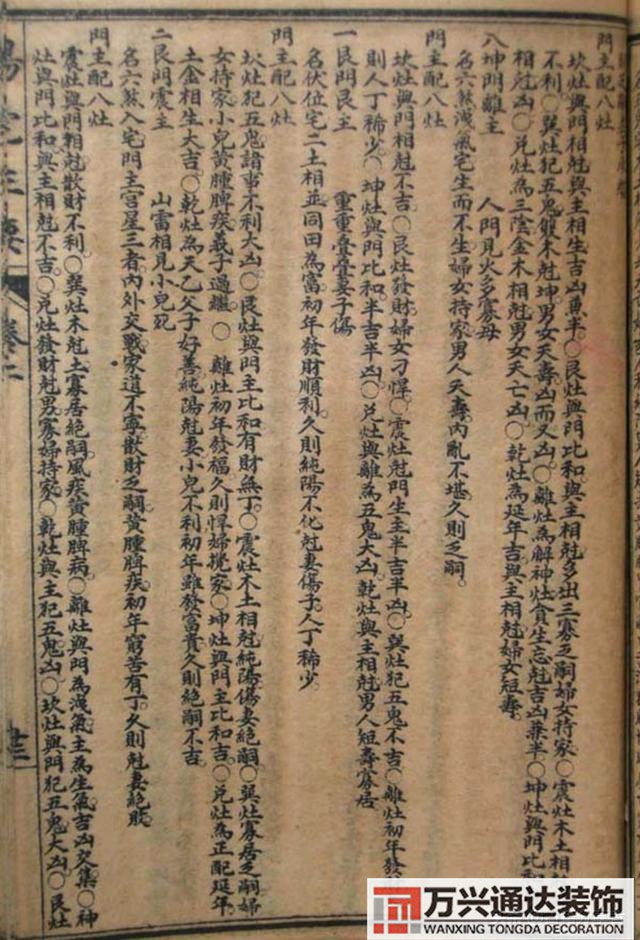 門主配八灶
坎灶與門相尅與主相生吉凶兼半〇艮灶與門比和與主相尅多出三寡乏嗣婦女持家〇震灶木土相
不利〇巽灶犯五鬼雙木尅坤男女夭壽凶而又凶〇離灶為解神灶貪生忘尅吉凶兼半〇坤灶與門比和
相尅凶〇兌灶為三陰金木相尅男女夭亡凶〇乾灶為延年吉與主相尅婦女短壽
八坤門離主 人門見火多寡母
名六煞洩氣宅生而不生婦女持家男人夭壽內亂不堪久則乏嗣
門主配八灶
坎灶與門相尅不吉〇艮灶發財婦女刁悍〇震灶尅門生主半吉半凶〇巽灶犯五鬼不吉〇離灶初年發
則人丁稀少〇坤灶與門比和半吉半凶〇兌灶與離為五鬼大凶〇乾灶與主相尅男人短壽寡居
一艮門艮主 重重疊疊妻子傷
名伏位宅二土相並同田為富初年發財順利久則純陽不化尅妻傷子人丁稀少
門主配八灶
坎灶犯五鬼諸事不利大凶〇艮灶與門主比和有財無丁〇震灶木土相尅純陽傷妻絕嗣〇巽灶寡居乏嗣婦
女持家小兒黃腫脾疾義子過繼〇離灶初年發福久則悍婦攪家〇坤灶與門主比和吉〇兌灶為正配延年
土金相生大吉〇乾灶為天乙父子好善純陽尅妻小兒不利初年雖發富貴久則絕嗣不吉
二艮門震主 山雷相見小兒死
名六煞入宅門主宮星三者內外交戰家道不寧散財乏嗣黃腫脾疾初年窮苦有丁久則尅妻絕
門主配八灶
震灶與門相尅散財不利〇巽灶木尅土寡居絕嗣風疾黃腫脾病〇離灶與門為洩氣主為生氣吉凶交集〇坤
灶與門比和與主相尅不吉〇兌灶發財尅男寡婦持家〇乾灶與主犯五鬼凶〇坎灶與門犯五鬼大凶〇艮灶
卷二
万兴通达装饰
WANXING TONGDA DECORATION